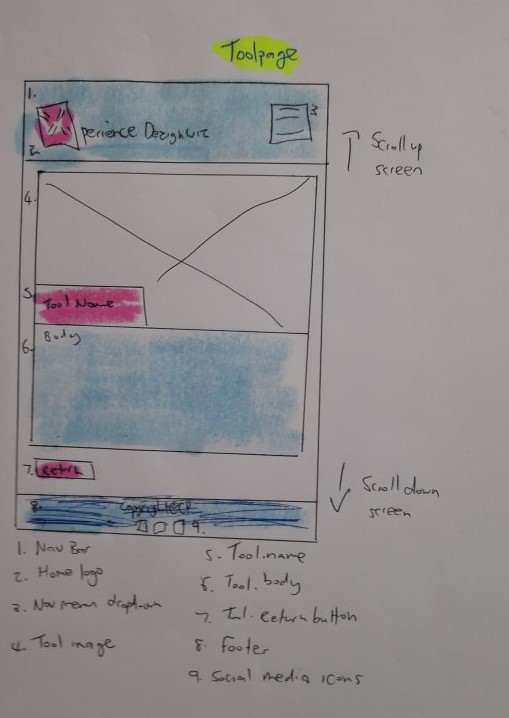 Toolpage
1.
3.
2. perience Dezignurz
Scroll up
screen
4.
5. Tool Name
Body
6.
7. return
Scroll down
screen
8.
9.
1. Nav Bar
2. Home logo
3. Nav menu dropdown
4. Tool image
5. Tool.name
6. Tool.body
7. Tool.return button
8. Footer
9. Social media icons